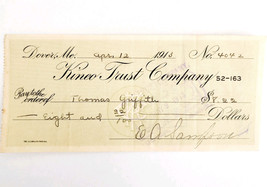 Dover, Me. Apr. 12 1913 No. 4042
Kineo Trust Company 52-163
Pay to the
order of Thomas Griffith $8.22
Eight and 22/100 Dollars
E A Sampson